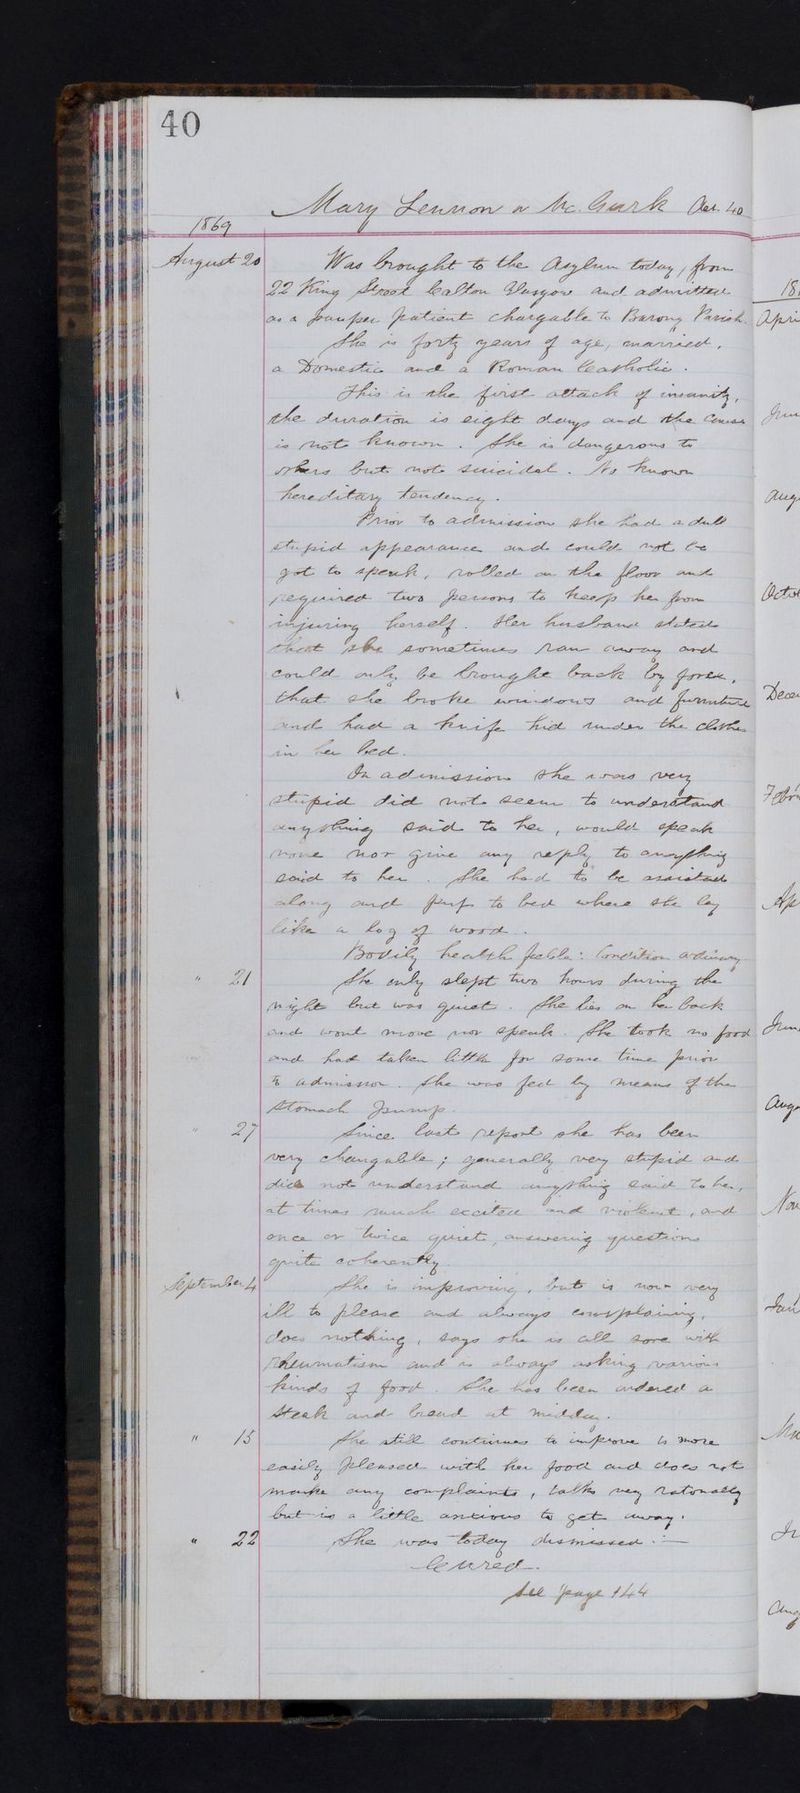 40
Mary Lennon or Mc.Gurk Aet. 40
1869
August 20 Was brought to the Asylum today, from
22 King Street Calton Glasgow and admitted
as a pauper patient chargable to Barony Parish.
She is forty years of age, married,
a Domestic and a Roman Catholic.
This is the first attack of insanity,
the duration is eight days and the cause
is not known. She is dangerous to
others but not suicidal. No known
hereditary tendency.
Prior to admission she had a dull
stupid appearance and could not be
got to speak, rolled on the floor and
required two persons to keep her from
injuring herself. Her husband states
that she sometimes ran away and
could only be brought back by force,
that she broke windows and furniture
and had a knife hid under the clothes
in her bed.
On admission she was very
stupid did not seem to understand
anything said to her, would speak
none nor give any reply to anything
said to her. She had to be assisted
along and put to bed where she lay
like a log of wood.
Bodily health feeble: Condition ordinary
" 21 She only slept two hours during the
night but was quiet. She lies on her back
and wont move nor speak. She took no food
and had taken little for some time prior
to admission. She was fed by means of the
stomach pump.
" 27 Since last report she has been
very changable; generally very stupid and
did not understand anything said to her,
at times much excited and violent, and
once or twice quiet, answering questions
quite coherently.
September 4 She is improving, but is now very
ill to please and always complaining,
does nothing, says she is all sore with
rheumatism and is always asking various
kinds of food. She has been ordered a
steak and bread at midday.
" 15 She still continues to improve is more
easily pleased with her food and does not
make any complaints, talks very rationally
but is a little anxious to get away.
" 22 She was today dismissed:—
Cured.
See page 144
18
Apri
Jun
Aug
Octo
Dece
Febr
Ap
Jun
Aug
Nov
Jan
Ma
Ju
Aug